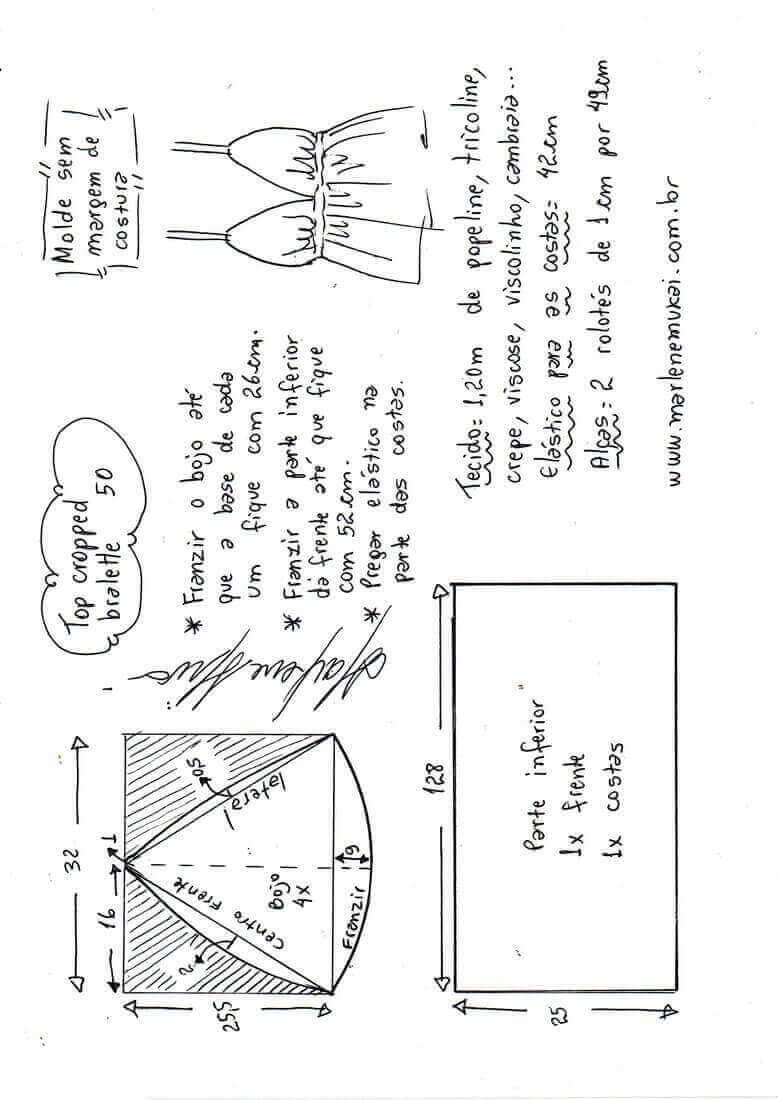 Top cropped
bralette 50
Molde sem
margem de
costura
32
16
1
25,5
2
Centro Frente
0,5
lateral
Bojo
4x
Franzir
* Franzir o bojo até
que a base de cada
um fique com 26cm.
* Franzir a parte inferior
da frente até que fique
com 52cm.
* Pregar elástico na
parte das costas.
128
25
Parte inferior
1x frente
1x costas
Tecido= 1,20m de popeline, tricoline,
crepe, viscose, viscolinho, cambraia...
Elástico para as costas= 42cm
Alças= 2 rolotés de 1cm por 49cm
www.marlenemukai.com.br